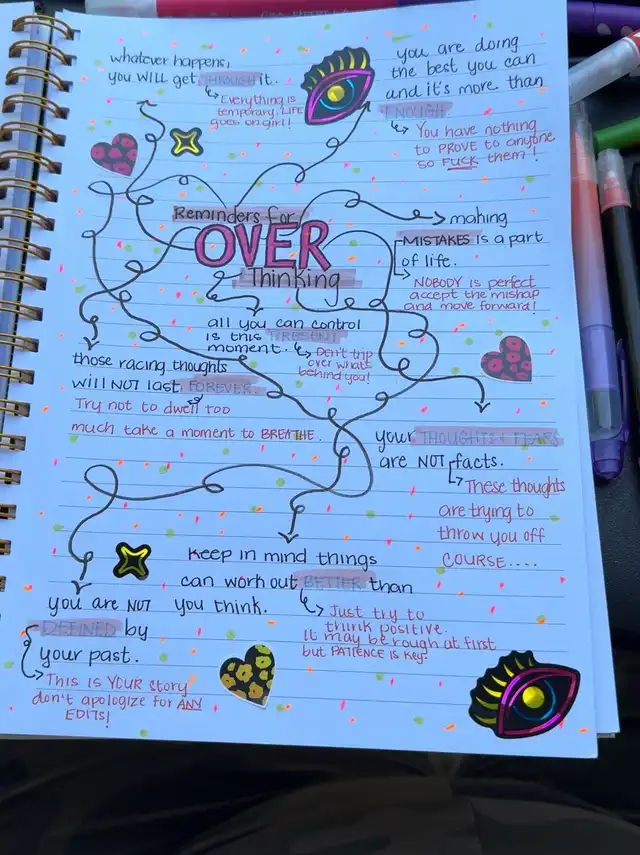 whatever happens,
you WILL get THROUGH it.
Everything is
temporary. LIFE
goes on girl!
you are doing
the best you can
and it's more than
ENOUGH.
You have nothing
to PROVE to anyone
so FUCK them!
Reminders for
OVER
Thinking
making
MISTAKES is a part
of life.
NOBODY is perfect
accept the mishap
and move forward!
all you can control
is this PRESENT
moment.
Don't trip
over whats
behind you!
those racing thoughts
will NOT last FOREVER.
Try not to dwell too
much take a moment to BREATHE.
your THOUGHTS & FEARS
are NOT facts.
These thoughts
are trying to
throw you off
COURSE....
Keep in mind things
can work out BETTER than
you think.
Just try to
think positive.
it may be rough at first
but PATIENCE is key.
you are NOT
DEFINED by
your past.
This is YOUR story
don't apologize for ANY
EDITS!